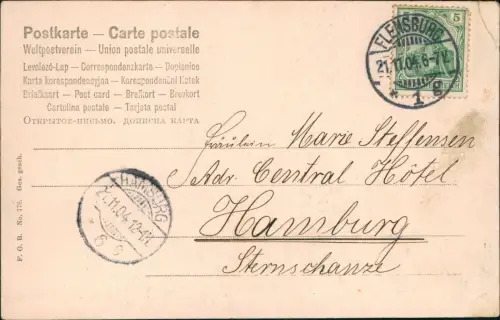 Postkarte – Carte postale
Weltpostverein – Union postale universelle
Levelező-Lap – Correspondenzkarte – Dopisnice
Karta korespondencyjna – Korespondenční lístek
Briefkaart – Post card – Brefkort – Brevkort
Cartolina postale – Tarjeta postal
Открытое письмо. Дописна карта
5
FLENSBURG
21.11.04. 6-7V.
* 1 g
Fräulein Marie Steffensen
Adr. Central Hôtel
Hamburg
Sternschanze
HAMBURG
21.11.04. 12-1N.
* 6 e
F. G. R. No. 178. Ges. gesch.